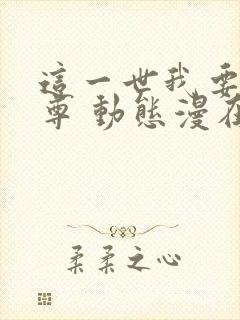 這一世我要
尊 動態漫在
柔柔之心